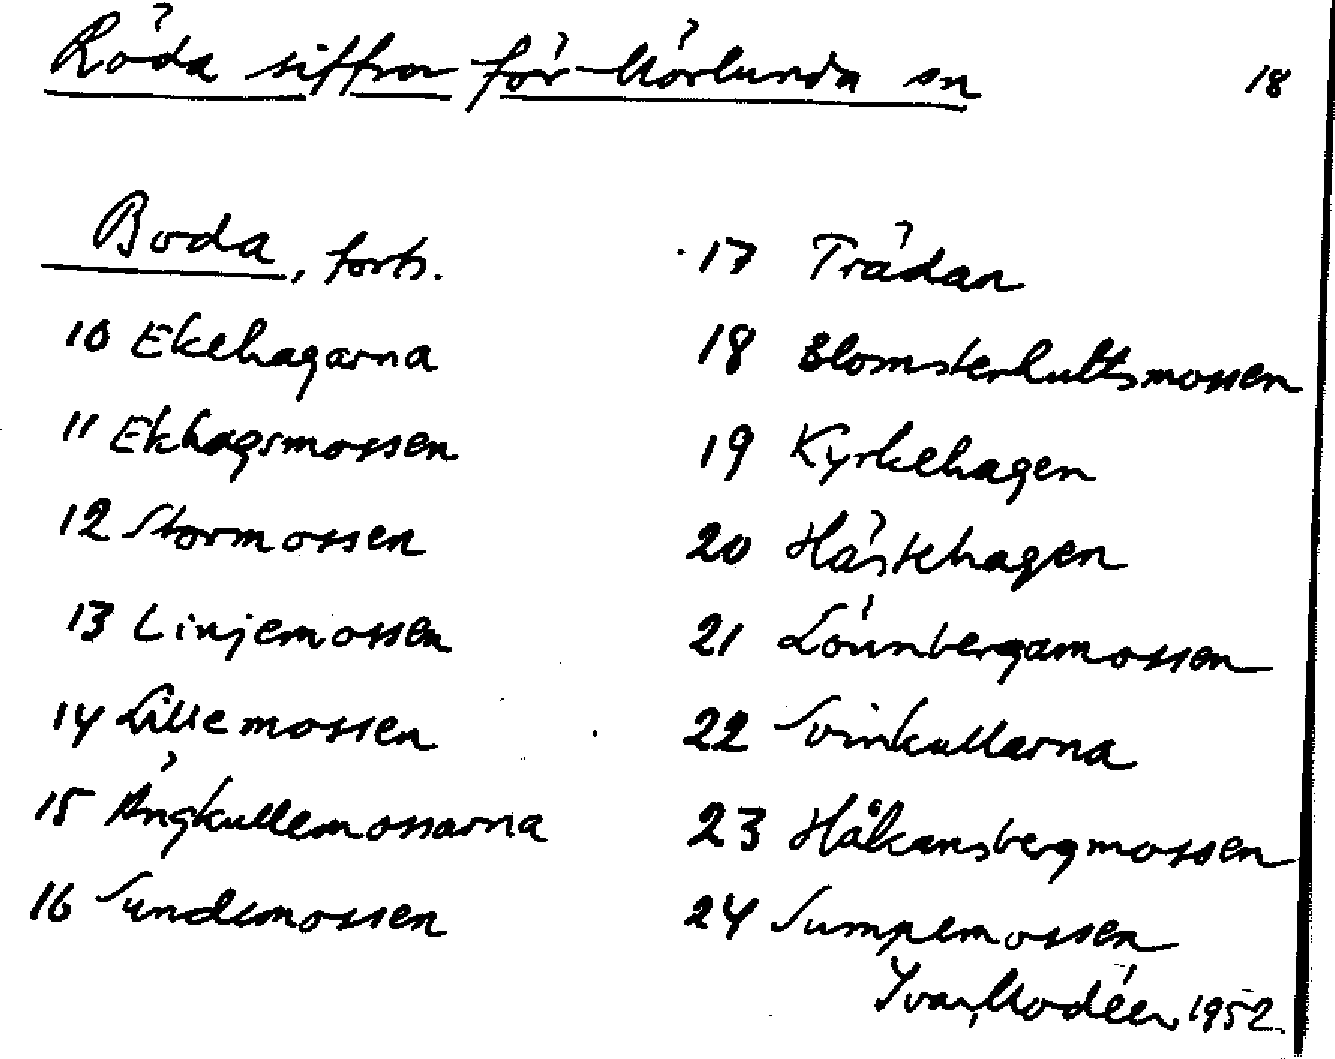 Röda siffror för Mörlunda sn
18
Boda, forts.
10 Ekehagarna
11 Ekhagsmossen
12 Stormossen
13 Linjemossen
14 Lillemossen
15 Ängkullemossarna
16 Sundemossen
17 Trädan
18 Blomsterhultsmossen
19 Kyrkehagen
20 Hästehagen
21 Lönnbergamossen
22 Svinkullarna
23 Håkansbergmossen
24 Sumpemossen
Ivar Modéer, 1952